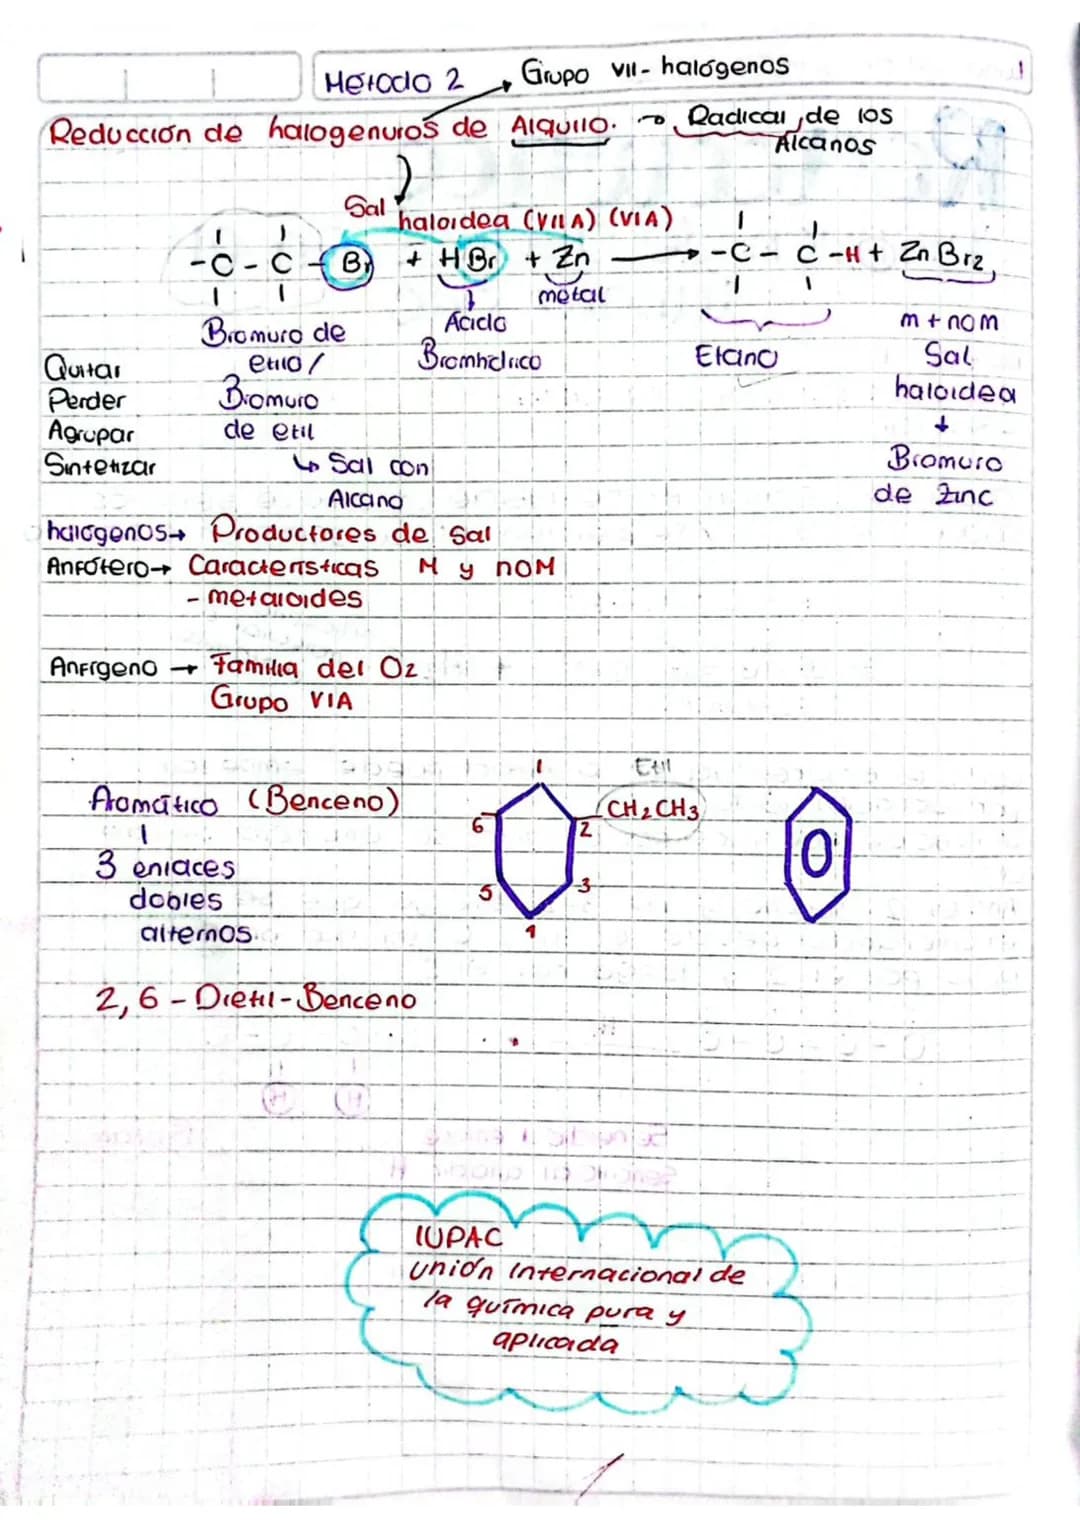 Método 2 → Grupo VII - halógenos
Reducción de halogenuros de Alquilo. → Radical de los
Alcanos
Sal haloidea (VIIA) (VIA)
-C - C - Br + HBr + Zn → -C - C -H + ZnBr2
metal
Bromuro de
etilo /
Bromuro
de etil
↳ Sal con
Alcano
Ácido
Bromhídrico
Etano
m + nom
Sal
haloidea
↓
Bromuro
de Zinc
Quitar
Perder
Agrupar
Sintetizar
halógenos→ Productores de Sal
Anfótero→ Características M y noM
- metaloides
Anfígeno → Familia del O2
Grupo VIA
Aromático (Benceno)
3 enlaces
dobles
alternos
Etil
CH2CH3
1
2
3
4
5
6
2,6 - Dietil - Benceno
IUPAC
unión Internacional de
la química pura y
aplicada